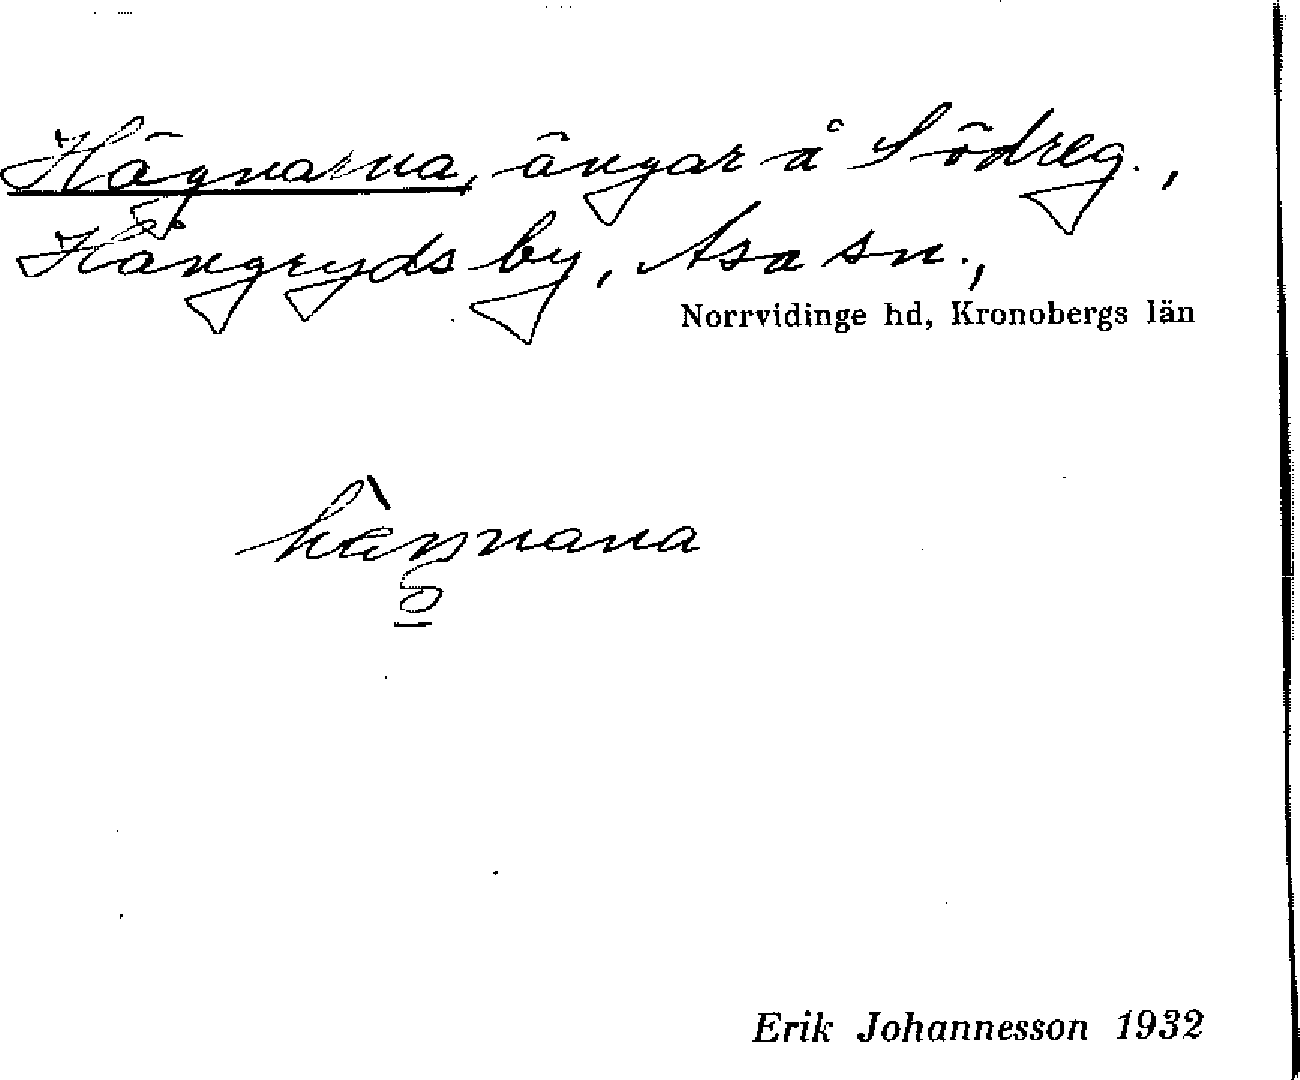 Hägnarna, ängar å Södreg.,
Hängryds by, Asa sn.,
Norrvidinge hd, Kronobergs län
Erik Johannesson 1932